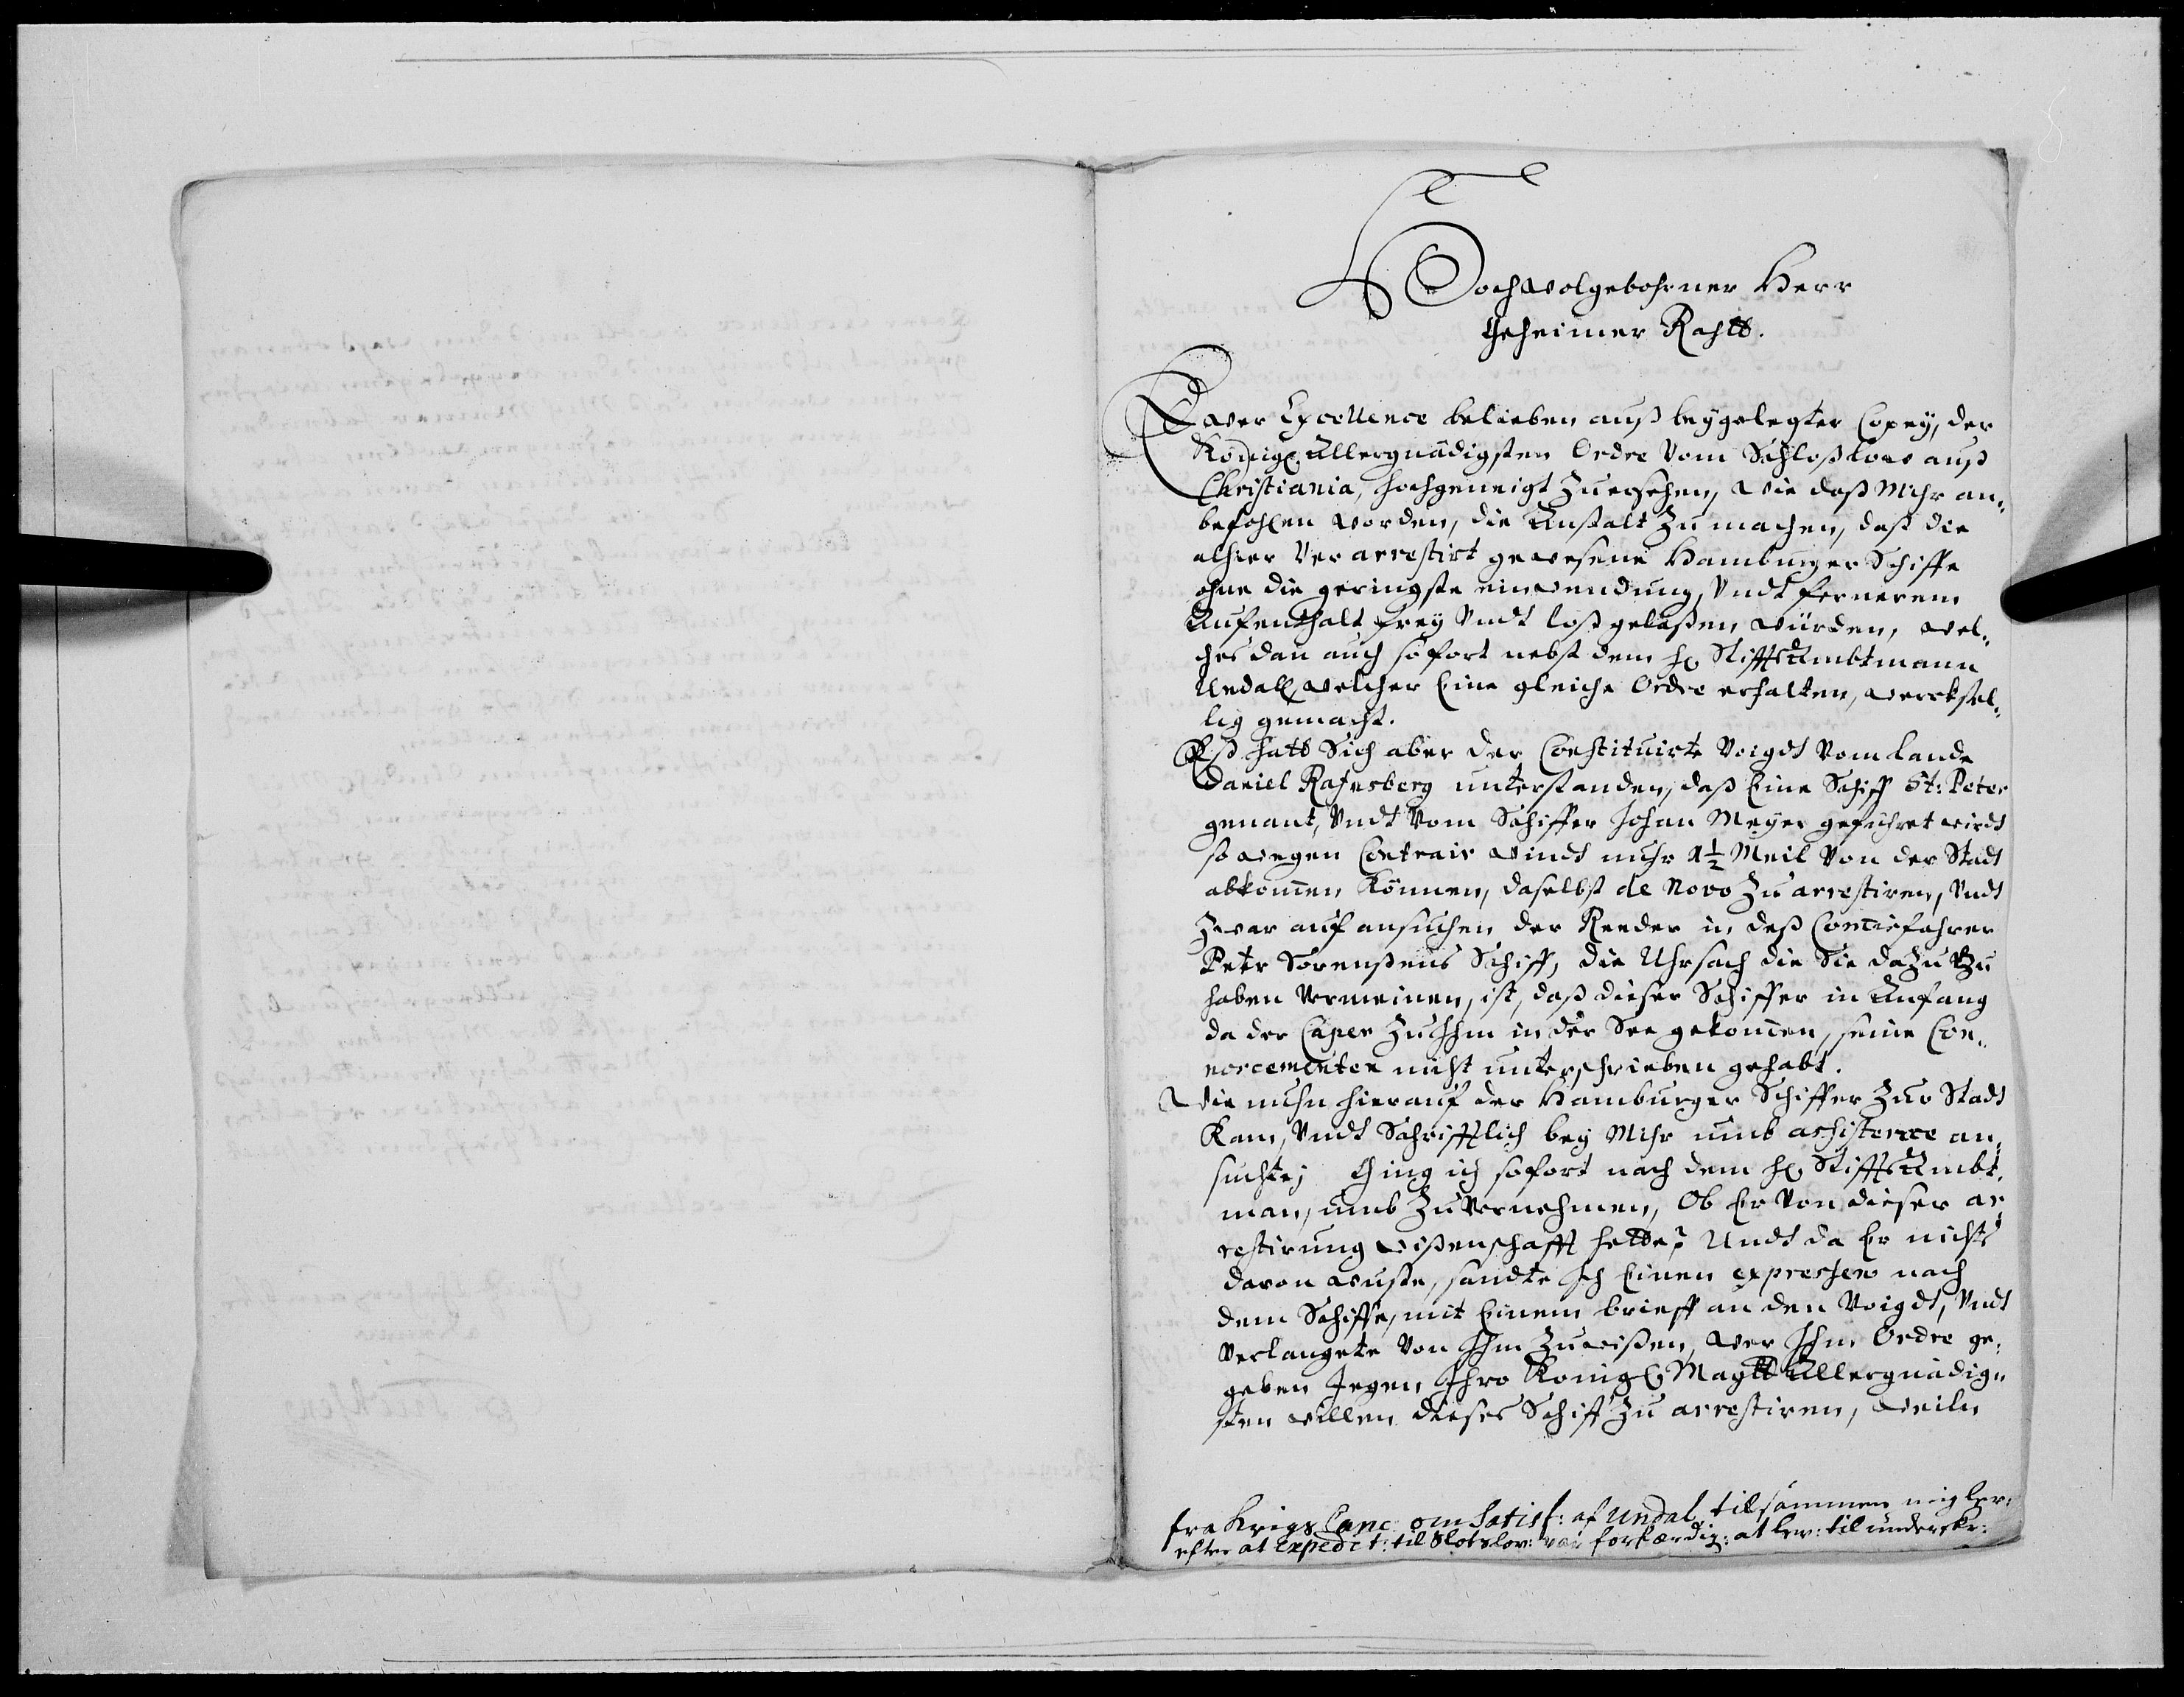 Hochwolgebohrner Herr
Geheimer Rahtt.
Ewer Excellence belieben auß beygelegter Copey, der
Königl. Allergnädigsten Ordre Vom Schloßlow auß
Christiania, hochgeneigt zu ersehen, wie daß Mihr an-
befohlen worden, die Anstalt zu machen, daß die
alhier Verarrestirt gewesene Hamburger Schiffe
ohne die geringste einwendung, Vndt fernerem
Aufenthalt frey Vndt loß gelaßen würden, wel-
ches dan auch sofort nebst dem H. StifftsAmbtmann
Undall, welcher Eine gleiche Ordre erhalten, werckstel-
lig gemacht.
Eß hatt Sich aber der Constituirte Voigdt Vom Lande
Daniel Rafnsberg unterstanden, daß Eine Schiff St: Peter
genant, Vndt Vom Schiffer Johan Meyer geführet wirdt
so wegen Contrair windt nuhr 1½ Meil Von der Stadt
abkommen können, daselbst de Novo zu arrestiren, Vndt
zwar auf ansuchen der Reeder in deß Convoiefahrer
Petr Sörenßens Schiff, die Uhrsach die Sie dazu zu
haben Vermeinen, ist, daß dieser Schiffer in Anfang
da der Caper zu Ihm in der See gekommen, seine Con-
norcementen nicht unterschrieben gehabt.
Wie nuhn hierauf der Hamburger Schiffer zur Stadt
Kam, Vndt Schrifftlich bey Mihr umb assistence an-
suchte; Ging ich sofort nach dem H. StifftsAmbt-
man, umb zu Vernehmen, Ob Er Von dieser ar-
restirung wißenschafft hette? Undt da Er nichts
davon wuste, sandte Ich Einen expressen nach
dem Schiffe, mit Einem brieff an den Voigdt, Vndt
Verlangete Von Ihm zu wißen, wer Ihm Ordre ge-
geben Jegen Ihro Königl. Maytt Allergnädig-
sten willen dieses Schiff zu arrestiren, weiln
fra Krigs Canc: om Satisf: af Undal, tilsammen mig lev:
efter at Expedit: til Slotslov: var forfærdig: at lev: til underskr: